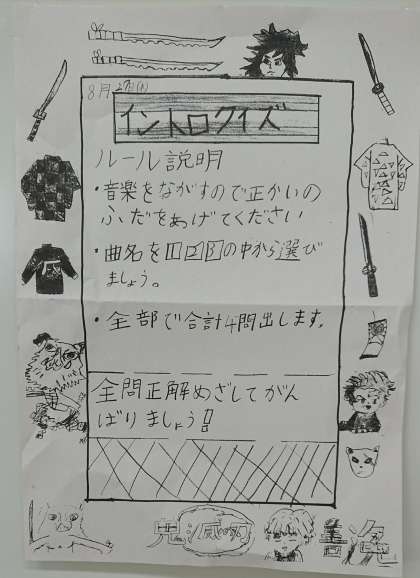 8月27日(木)
イントロクイズ
ルール説明
・音楽をながすので正かいの
ふだをあげてください
・曲名を123の中から選び
ましょう。
・全部で合計4問出します。
全問正解めざしてがん
ばりましょう!!